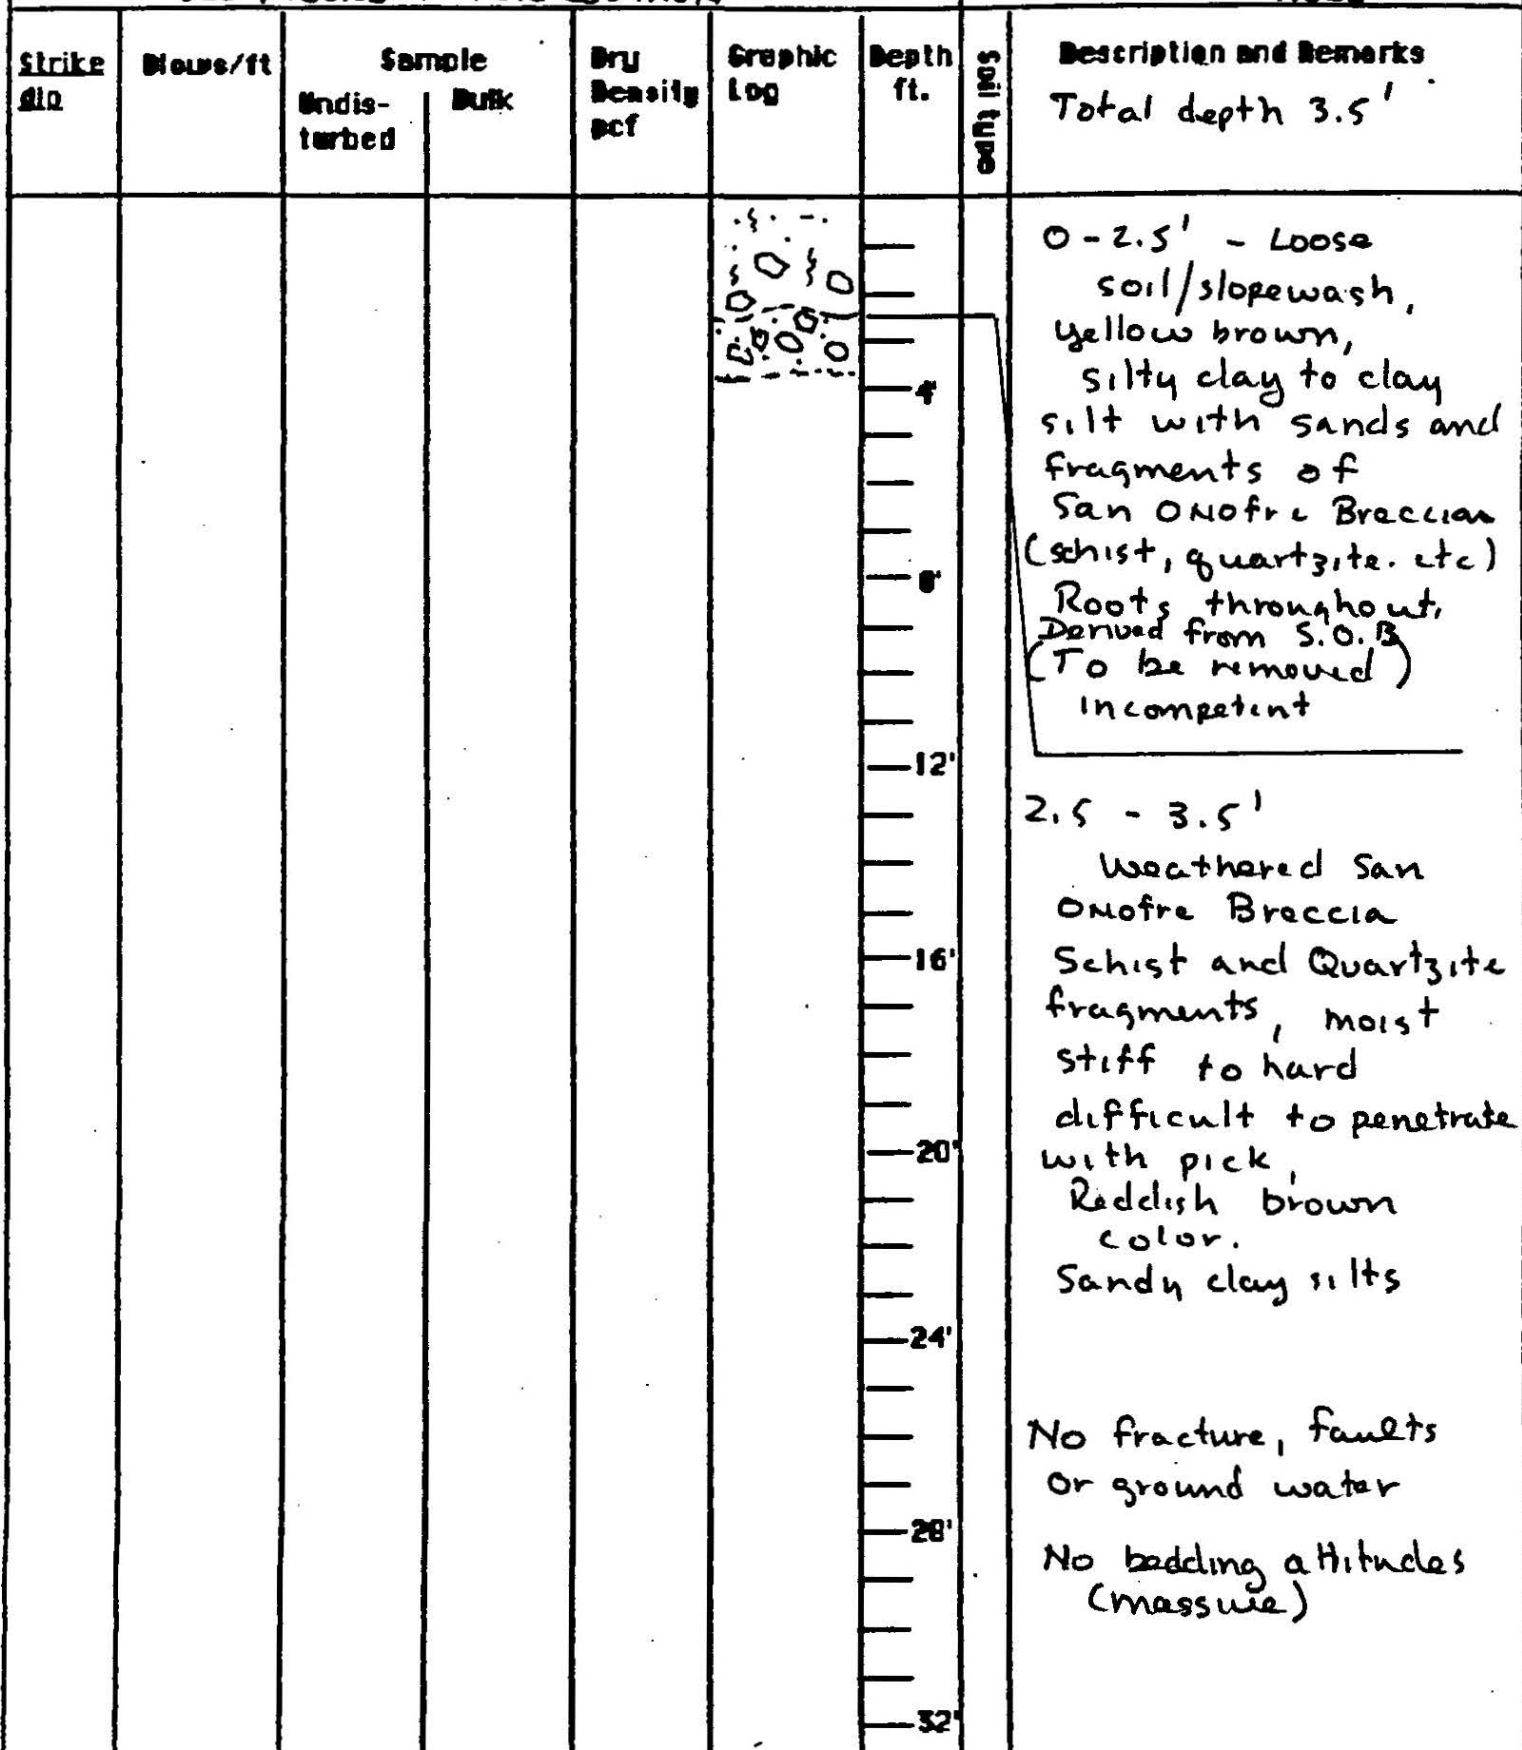 Strike
dip
Blows/ft
Sample
Undis-
turbed
Bulk
Dry
Density
pcf
Graphic
Log
Depth
ft.
Soil type
Description and Remarks
Total depth 3.5'
0 - 2.5' - Loose
soil/slopewash,
yellow brown,
silty clay to clay
silt with sands and
fragments of
San Onofre Breccia
(schist, quartzite. etc)
Roots throughout,
Derived from S.O.B
(To be removed)
incompetent
2.5 - 3.5'
Weathered San
Onofre Breccia
Schist and Quartzite
fragments, moist
stiff to hard
difficult to penetrate
with pick,
Reddish brown
color.
Sandy clay silts
No fracture, faults
or ground water
No bedding attitudes
(massive)
4'
8'
12'
16'
20'
24'
28'
32'